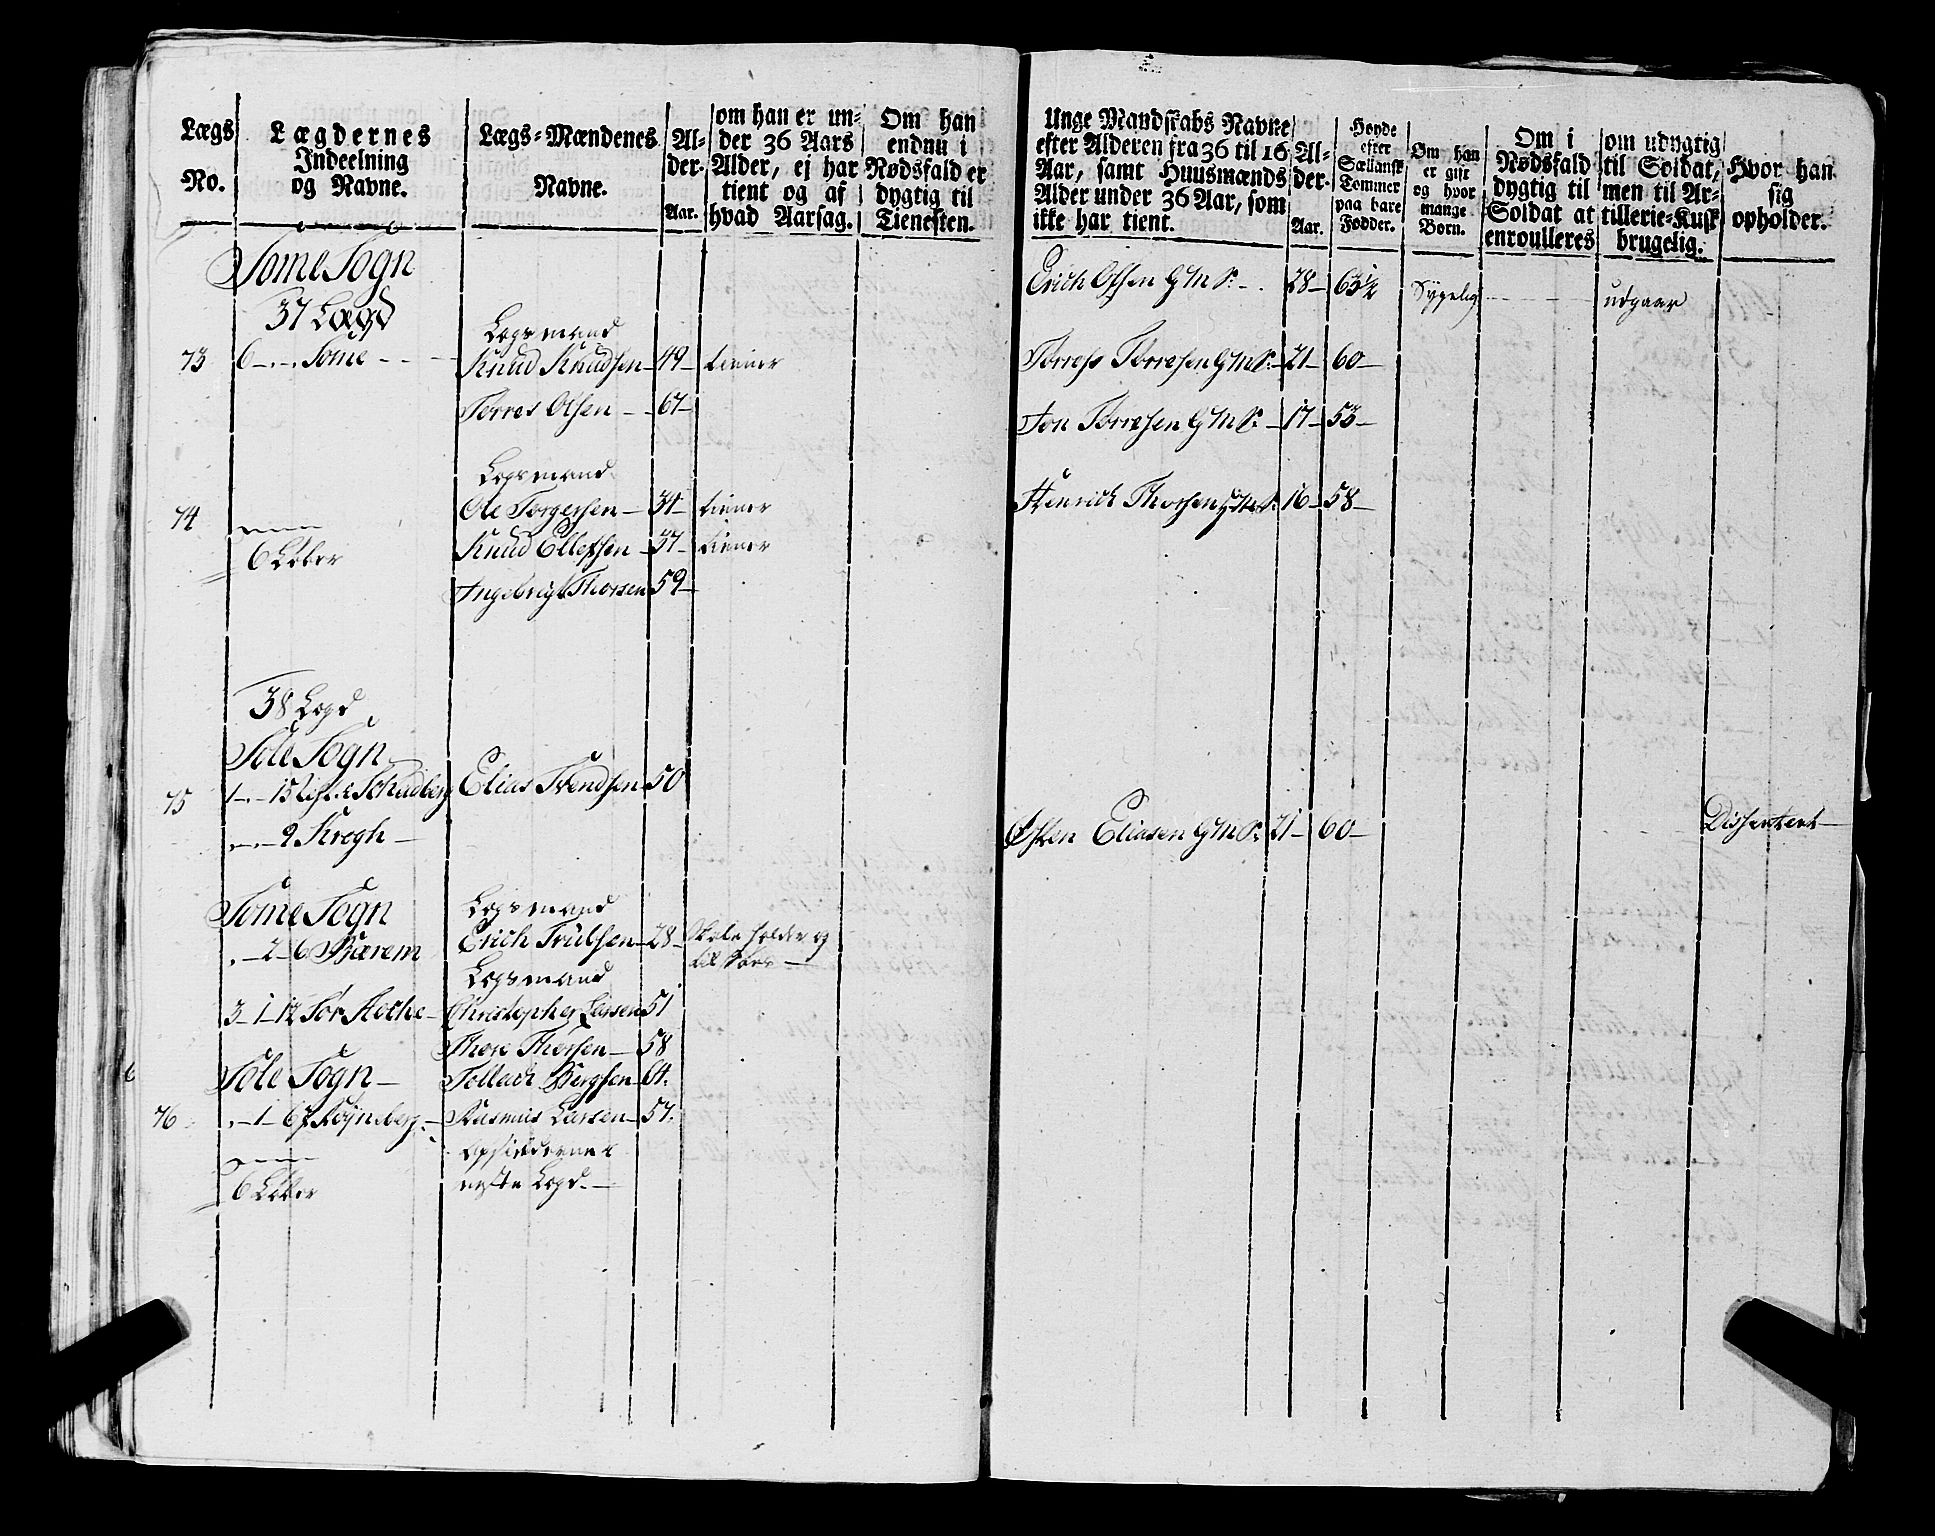 Lægs No.
Lægdernes Indeelning og Navne.
Lægs-Mændenes Navne.
Al-der. Aar.
om han er un-
der 36 Aars
Alder, ej har
tient og af
hvad Aarsag.
Om han
endnu i
Nødsfald er
dygtig til
Tienesten.
Unge Mandskabs Navne
efter Alderen fra 36 til 16
Aar, samt Huusmænds
Alder under 36 Aar, som
ikke har tient.
Al-der. Aar.
Høyde
efter
Sællansk
Tommer
paa bare
Fødder.
Om han
er gift
og hvor
mange
Børn.
Om i
Nødsfald
dygtig til
Soldat at
enroulleres
om udygtig
til Soldat,
men til Ar-
tillerie-Kusk
brugelig.
Hvor han
sig
opholder.
Some Sogn
37 Lægd
Lægsmand
73 6 Some Knud Knudsen 49 tiener
Torres Olsen 67
Lægsmand
74 Ole Torgersen 34 tiener
6 Løber Knud Ellefsen 37 tiener
Ingebrigt Thorsen 59
38 Lægd
Sole Sogn
75 1 15 Schadberg Elias Svendsen 50
2 Krogh
Some Sogn Lægsmand
2 6 Bærem Erich Trulsen 28 Skoleholder og
Lægsmand
3 1 12 Sør Christopher Larsen 51
Thore Thorsen 58
Sole Sogn Tollach Bergsen 64
76 1 6 Røyneberg Rasmus Larsen 57
Opsidderne i
6 Løber neste Lægd
Erich Olsen G M S: 28 63 1/2 Sygelig udgaar
Torres Torresen G M S: 21 60
Jon Torresen G M S: 17 53
Henrich Thorsen 16 58
Osken Eliasen G M S: 21 60 Dissentert
6